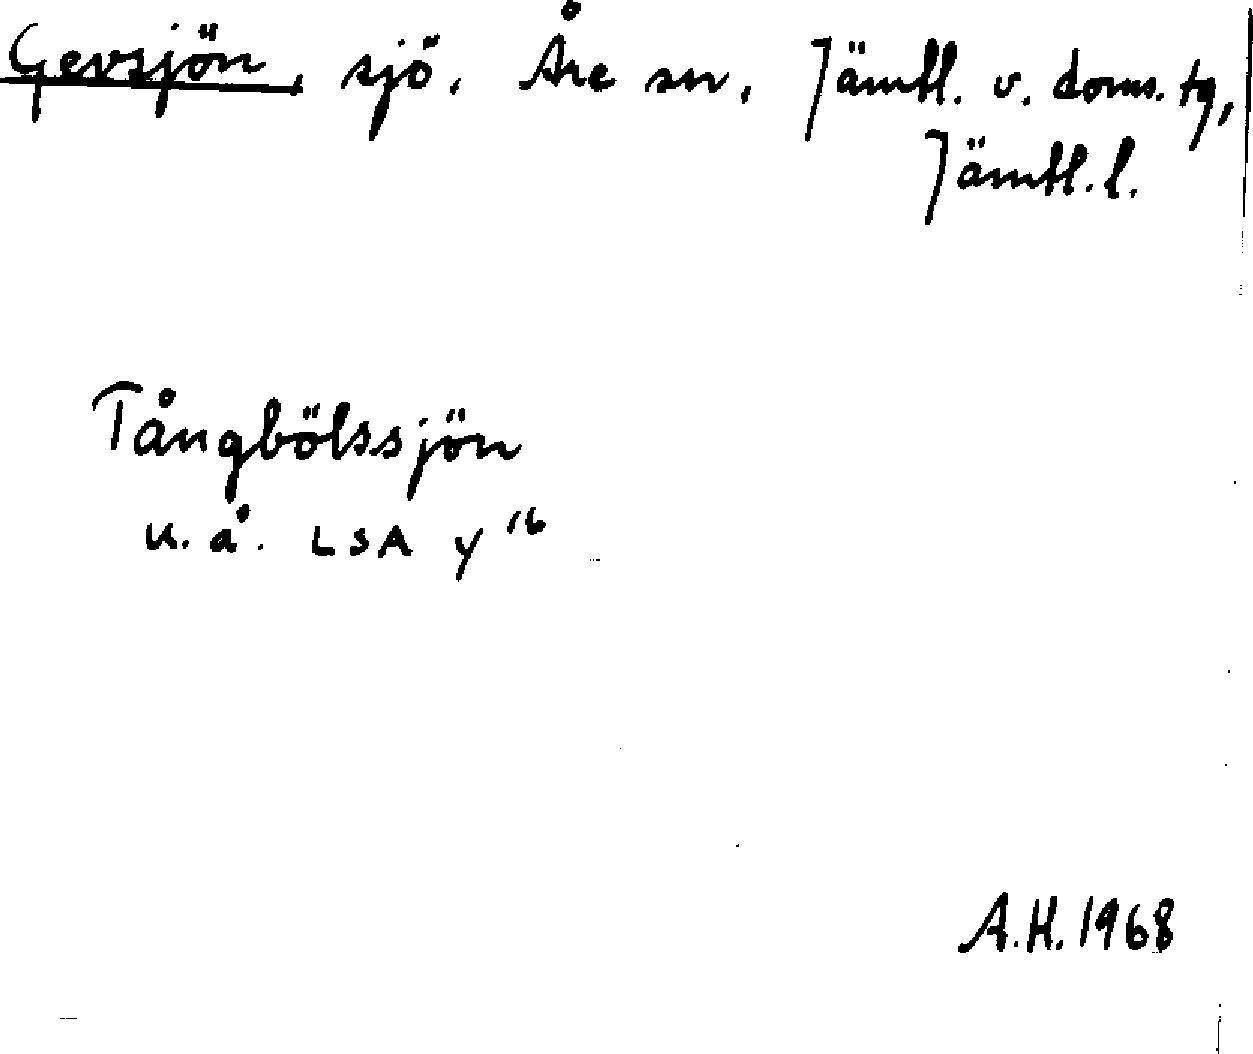 Gevsjön, sjö, Åre sn, Jämtl. v. doms. tg,
Jämtl. l.
Tångbölssjön
u. å. LSA y 16
A.H. 1968